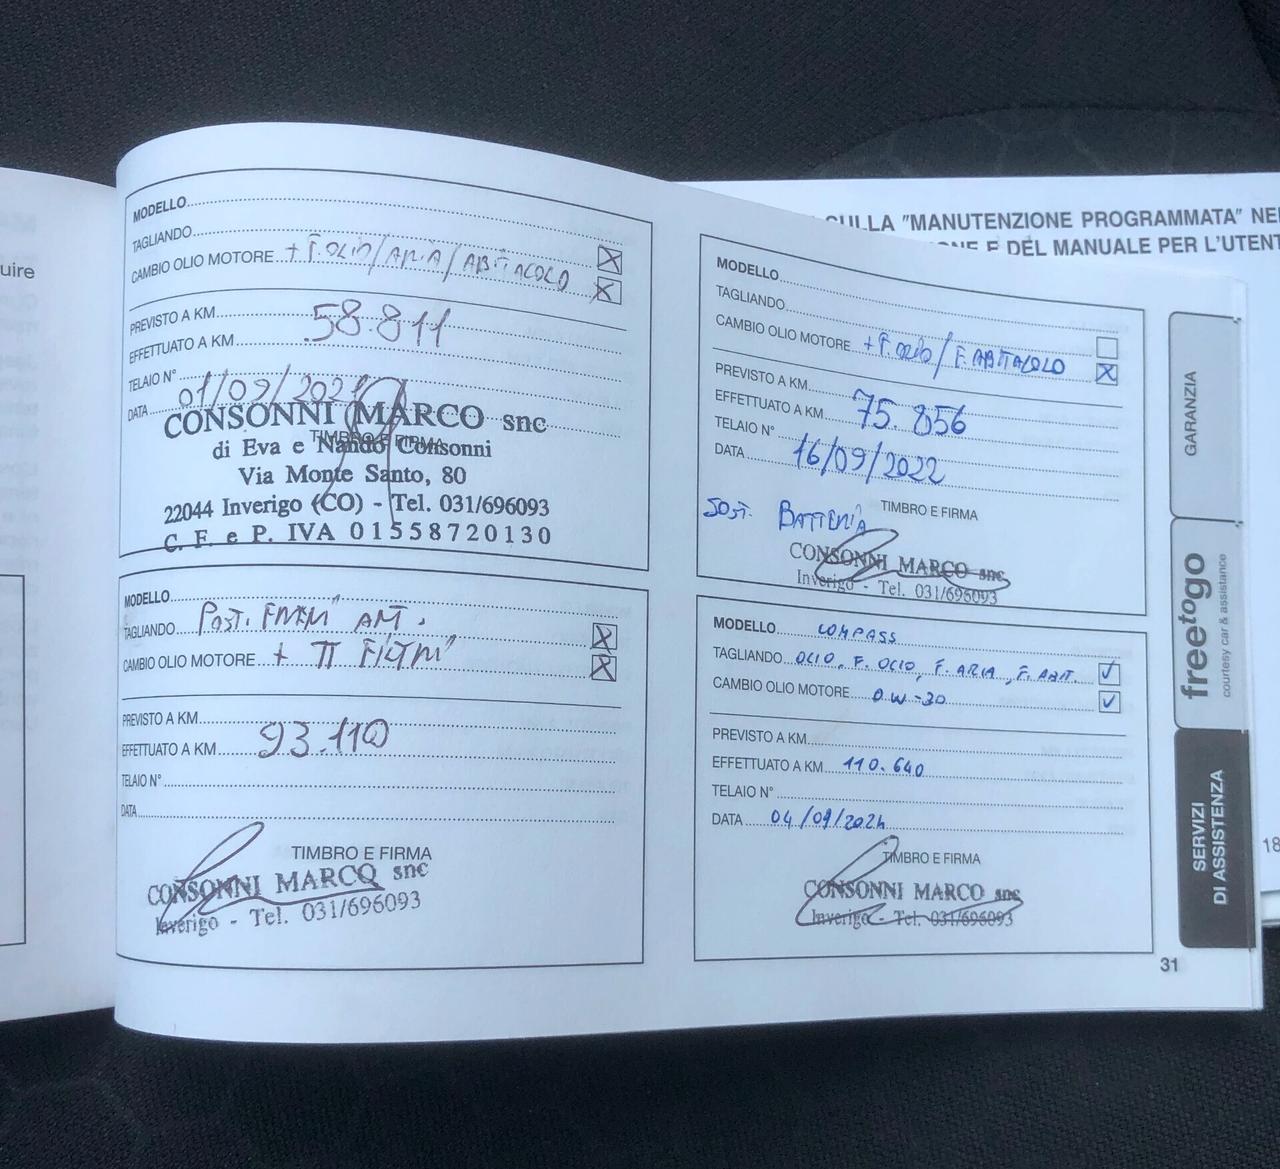 uire
SULLA "MANUTENZIONE PROGRAMMATA" NE
NE E DEL MANUALE PER L'UTENT
MODELLO
TAGLIANDO
CAMBIO OLIO MOTORE + F. OLIO/ARIA/ABITACOLO
PREVISTO A KM
EFFETTUATO A KM 58.811
TELAIO N°
DATA 01/09/2021
CONSONNI MARCO snc
TIMBRO E FIRMA
di Eva e Nando Consonni
Via Monte Santo, 80
22044 Inverigo (CO) - Tel. 031/696093
C. F. e P. IVA 01558720130
MODELLO
TAGLIANDO
CAMBIO OLIO MOTORE + F. OLIO / F. ABITACOLO
PREVISTO A KM
EFFETTUATO A KM 75.856
TELAIO N°
DATA 16/09/2022
TIMBRO E FIRMA
SOST. BATTERIA
CONSONNI MARCO snc
Inverigo - Tel. 031/696093
MODELLO
TAGLIANDO POST. FRENI ANT.
CAMBIO OLIO MOTORE + TT FILTRI
PREVISTO A KM
EFFETTUATO A KM 93.110
TELAIO N°
DATA
TIMBRO E FIRMA
CONSONNI MARCO snc
Inverigo - Tel. 031/696093
MODELLO COMPASS
TAGLIANDO OLIO, F. OLIO, F. ARIA, F. ABIT.
CAMBIO OLIO MOTORE 0W-30
PREVISTO A KM
EFFETTUATO A KM 110.640
TELAIO N°
DATA 04/09/2024
TIMBRO E FIRMA
CONSONNI MARCO snc
Inverigo - Tel. 031/696093
31
GARANZIA
freetogo
courtesy car & assistance
SERVIZI
DI ASSISTENZA
18